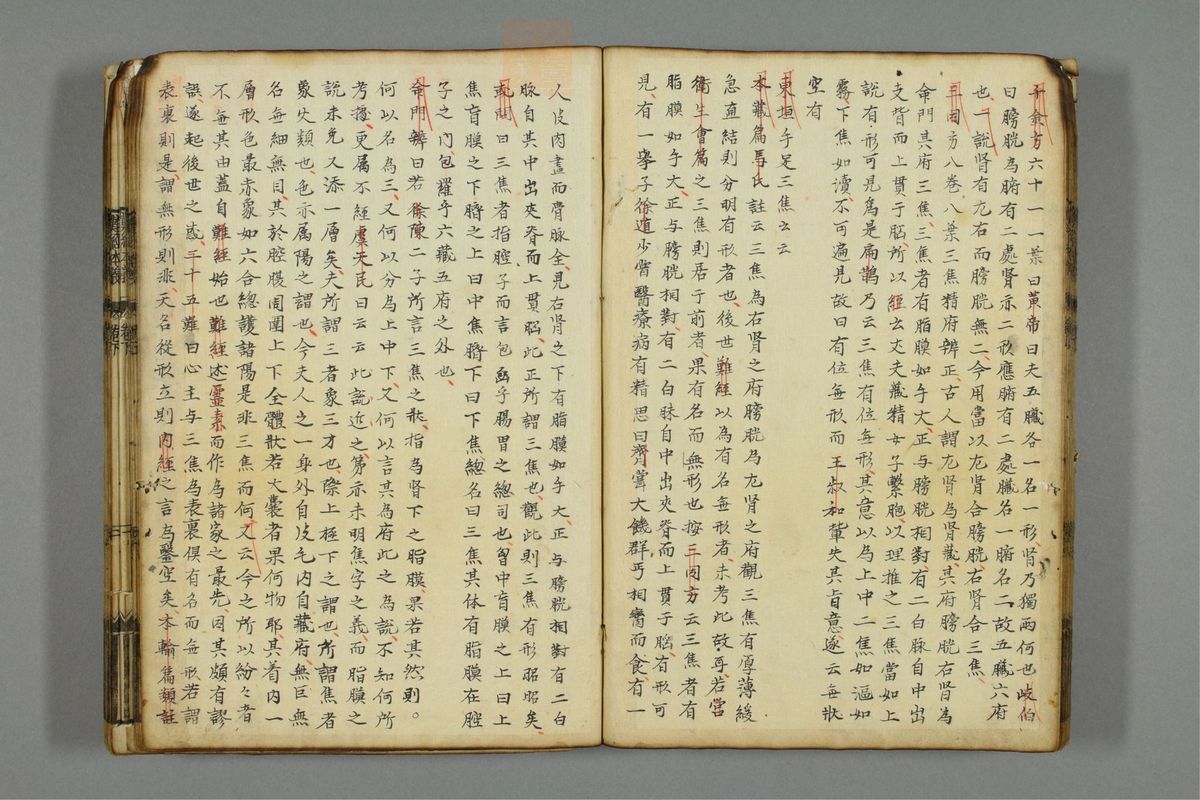 千金方六十一一葉曰黄帝曰夫五臓各一名一形肾乃獨両何也岐伯
曰膀胱為腑有二處肾亦二形應腑有二處臓名一腑名二故五臓六府
也一説肾有左右而膀胱無二今用當以左肾合膀胱右肾合三焦
三因方八巻八葉三焦精府辨正古人謂左肾為肾蔵其府膀胱右肾為
命門其府三焦三焦者有脂膜如手大正与膀胱相對有二白脉自中出
夹脊而上貫于脳所以経云丈夫蔵精女子繫胞以理推之三焦當如上
説有形可見為是扁鵲乃云三焦有位無形其意以為上中二焦如漚如
霧下焦如瀆不可遍見故曰有位無形而王叔和軰失其旨意遂云無狀
空有
東垣手足三焦云云
本蔵篇馬氏註云三焦為右肾之府膀胱為左肾之府觀三焦有厚薄緩
急直結則分明有形者也後世難経以為有名無形者未考此故耳若営
衛生會篇之三焦則居于前者果有名而無形也按三因方云三焦者有
脂膜如手大正与膀胱相對有二白脉自中出夹脊而上貫于脳有形可
見有一擧子徐遁少甞醫療病有精思曰齊甞大饑群丐相臠而食有一
人皮肉盡而骨脉全見右肾之下有脂膜如手大正与膀胱相對有二白
脉自其中出夹脊而上貫脳此正所謂三焦也觀此則三焦有形昭昭矣
或問曰三焦者指腔子而言包凾乎腸胃之總司也胷中肓膜之上曰上
焦肓膜之下臍之上曰中焦臍下曰下焦總名曰三焦其体有脂膜在腔
子之内包羅乎六蔵五府之外也
命門辨曰若徐陳二子所言三焦之狀指為肾下之脂膜果若其然則。
何以名為三又何以分為上中下又何以言其為府此之為説不知何所
考據更属不經虞天民曰云云此説近之第亦未明焦字之義而脂膜之
説未免又添一層矣夫所謂三者象三才也際上極下之謂也所謂焦者
象火類也色赤属陽之謂也今夫人之一身外自皮毛内自蔵府無巨無
名無細無目其於腔腹周圍上下全體狀若大囊者果何物耶其着内一
層形色最赤象如六合總護諸陽是非三焦而何又云今之所以紛々者
不無其由蓋自難経始也難経述霊素而作為諸家之最先因其頗有謬
誤遂起後世之惑三十五難曰心主与三焦為表裏倶有名而無形若謂
表裏則是謂無形則非夫名從形立則内経之言為鑿空矣本輸篇類註